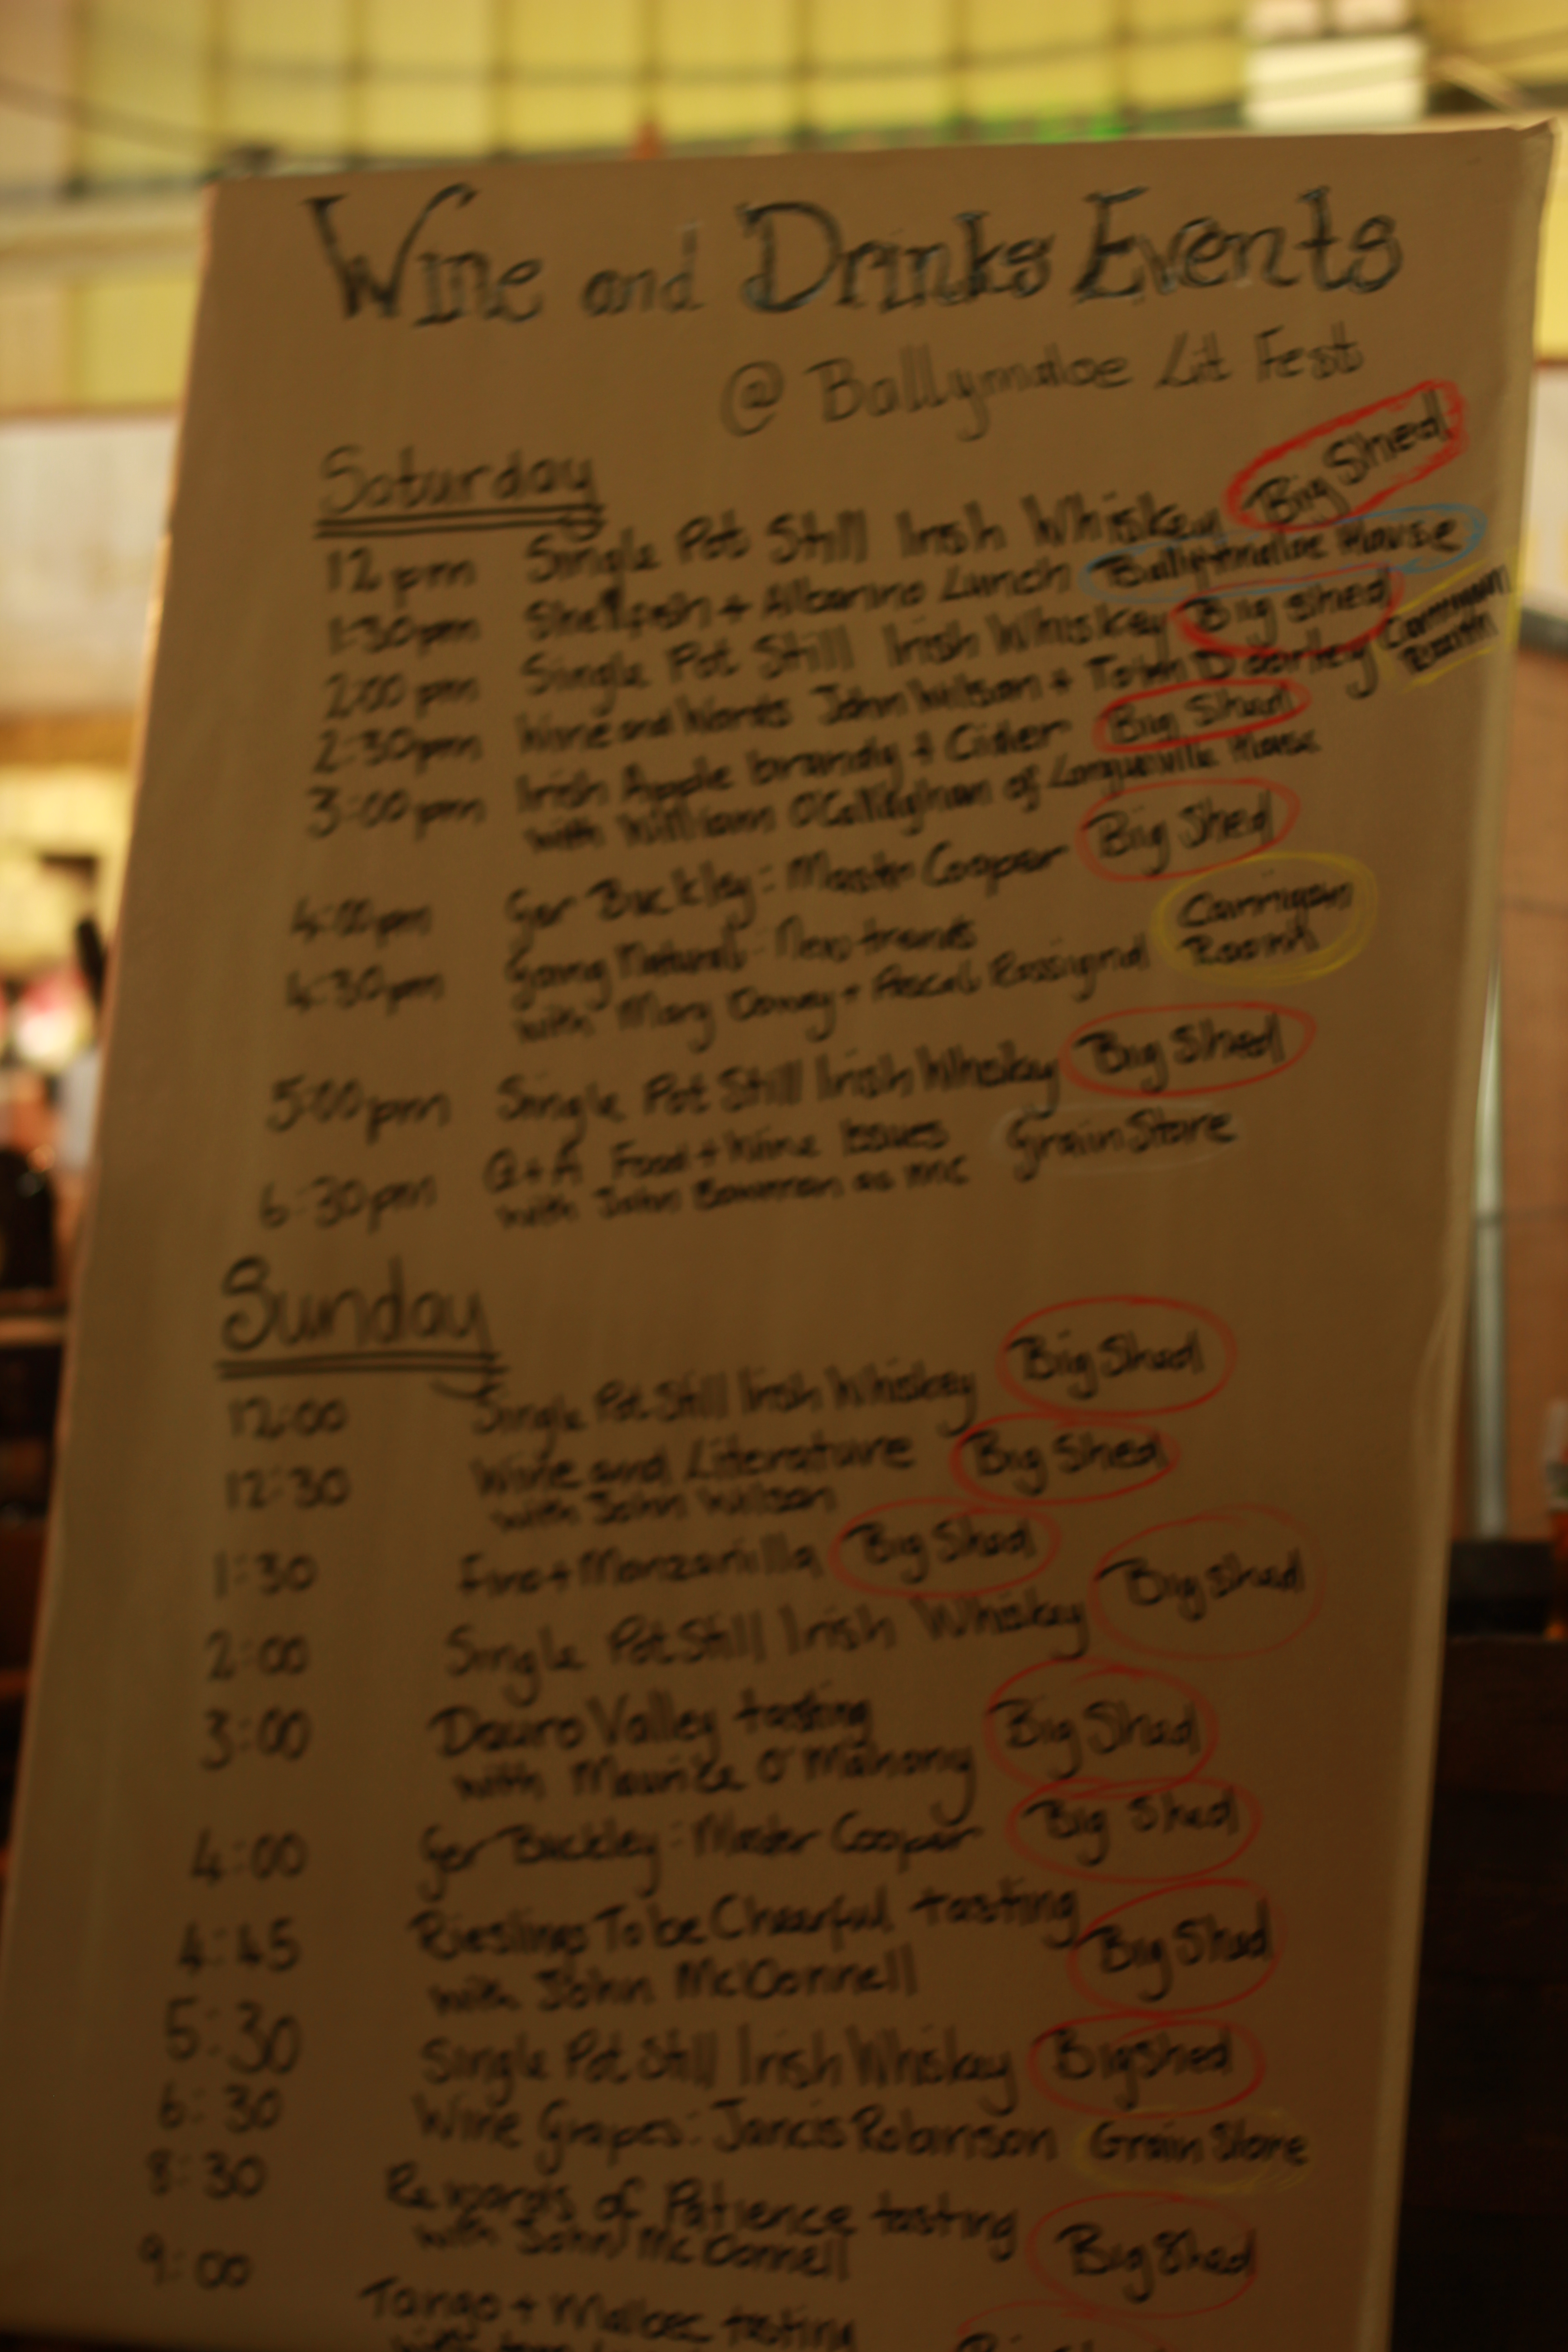 Wine and Drinks Events
@ Ballymaloe Lit Fest
Saturday
12pm Single Pot Still Irish Whiskey Big Shed
1:30pm Shellfish + Albarino Lunch Ballymaloe House
2:00pm Single Pot Still Irish Whiskey Big Shed
2:30pm Wine and Words John Wilson + Tom Doorley Carrigaun Room
3:00pm Irish Apple brandy + Cider Big Shed
with William O'Callaghan of Longueville House
4:00pm Ger Buckley: Master Cooper Big Shed
4:30pm Going Natural: New trends Carrigaun
with Mary Dowey + Pascal Rossignol Room
5:00pm Single Pot Still Irish Whiskey Big Shed
6:30pm Q+A Food + Wine Issues Grain Store
with John Bowman as MC
Sunday
12:00 Single Pot Still Irish Whiskey Big Shed
12:30 Wine and Literature Big Shed
with John Wilson
1:30 Fino + Manzanilla Big Shed
2:00 Single Pot Still Irish Whiskey Big Shed
3:00 Douro Valley tasting Big Shed
with Maurice O'Mahony
4:00 Ger Buckley: Master Cooper Big Shed
4:45 Rieslings To be Cheerful tasting Big Shed
with John McDonnell
5:30 Single Pot Still Irish Whiskey Big Shed
6:30 Wine Grapes: Jancis Robinson Grain Store
8:30 Rewards of Patience tasting Big Shed
with John McDonnell
9:00 Tango + Malbec tasting
with